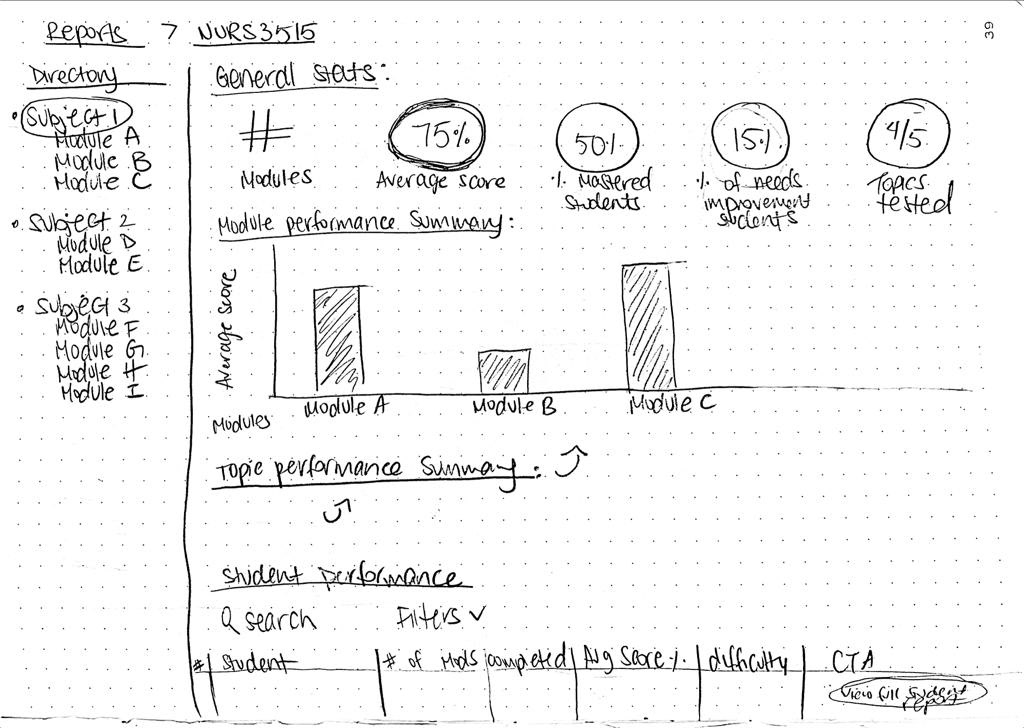 Reports > NURS3515
39
Directory
• Subject 1
Module A
Module B
Module C
• Subject 2
Module D
Module E
• Subject 3
Module F
Module G
Module H
Module I
General stats:
#
Modules
75%
Average score
50%
% Mastered
students
15%
% of needs
improvement
students
4/5
Topics
tested
Module performance summary:
Average score
Modules
Module A
Module B
Module C
Topic performance summary:
Student performance
Q search
Filters ∨
# | Student | # of Mods | completed | Avg Score % | difficulty | CTA
View full student
report